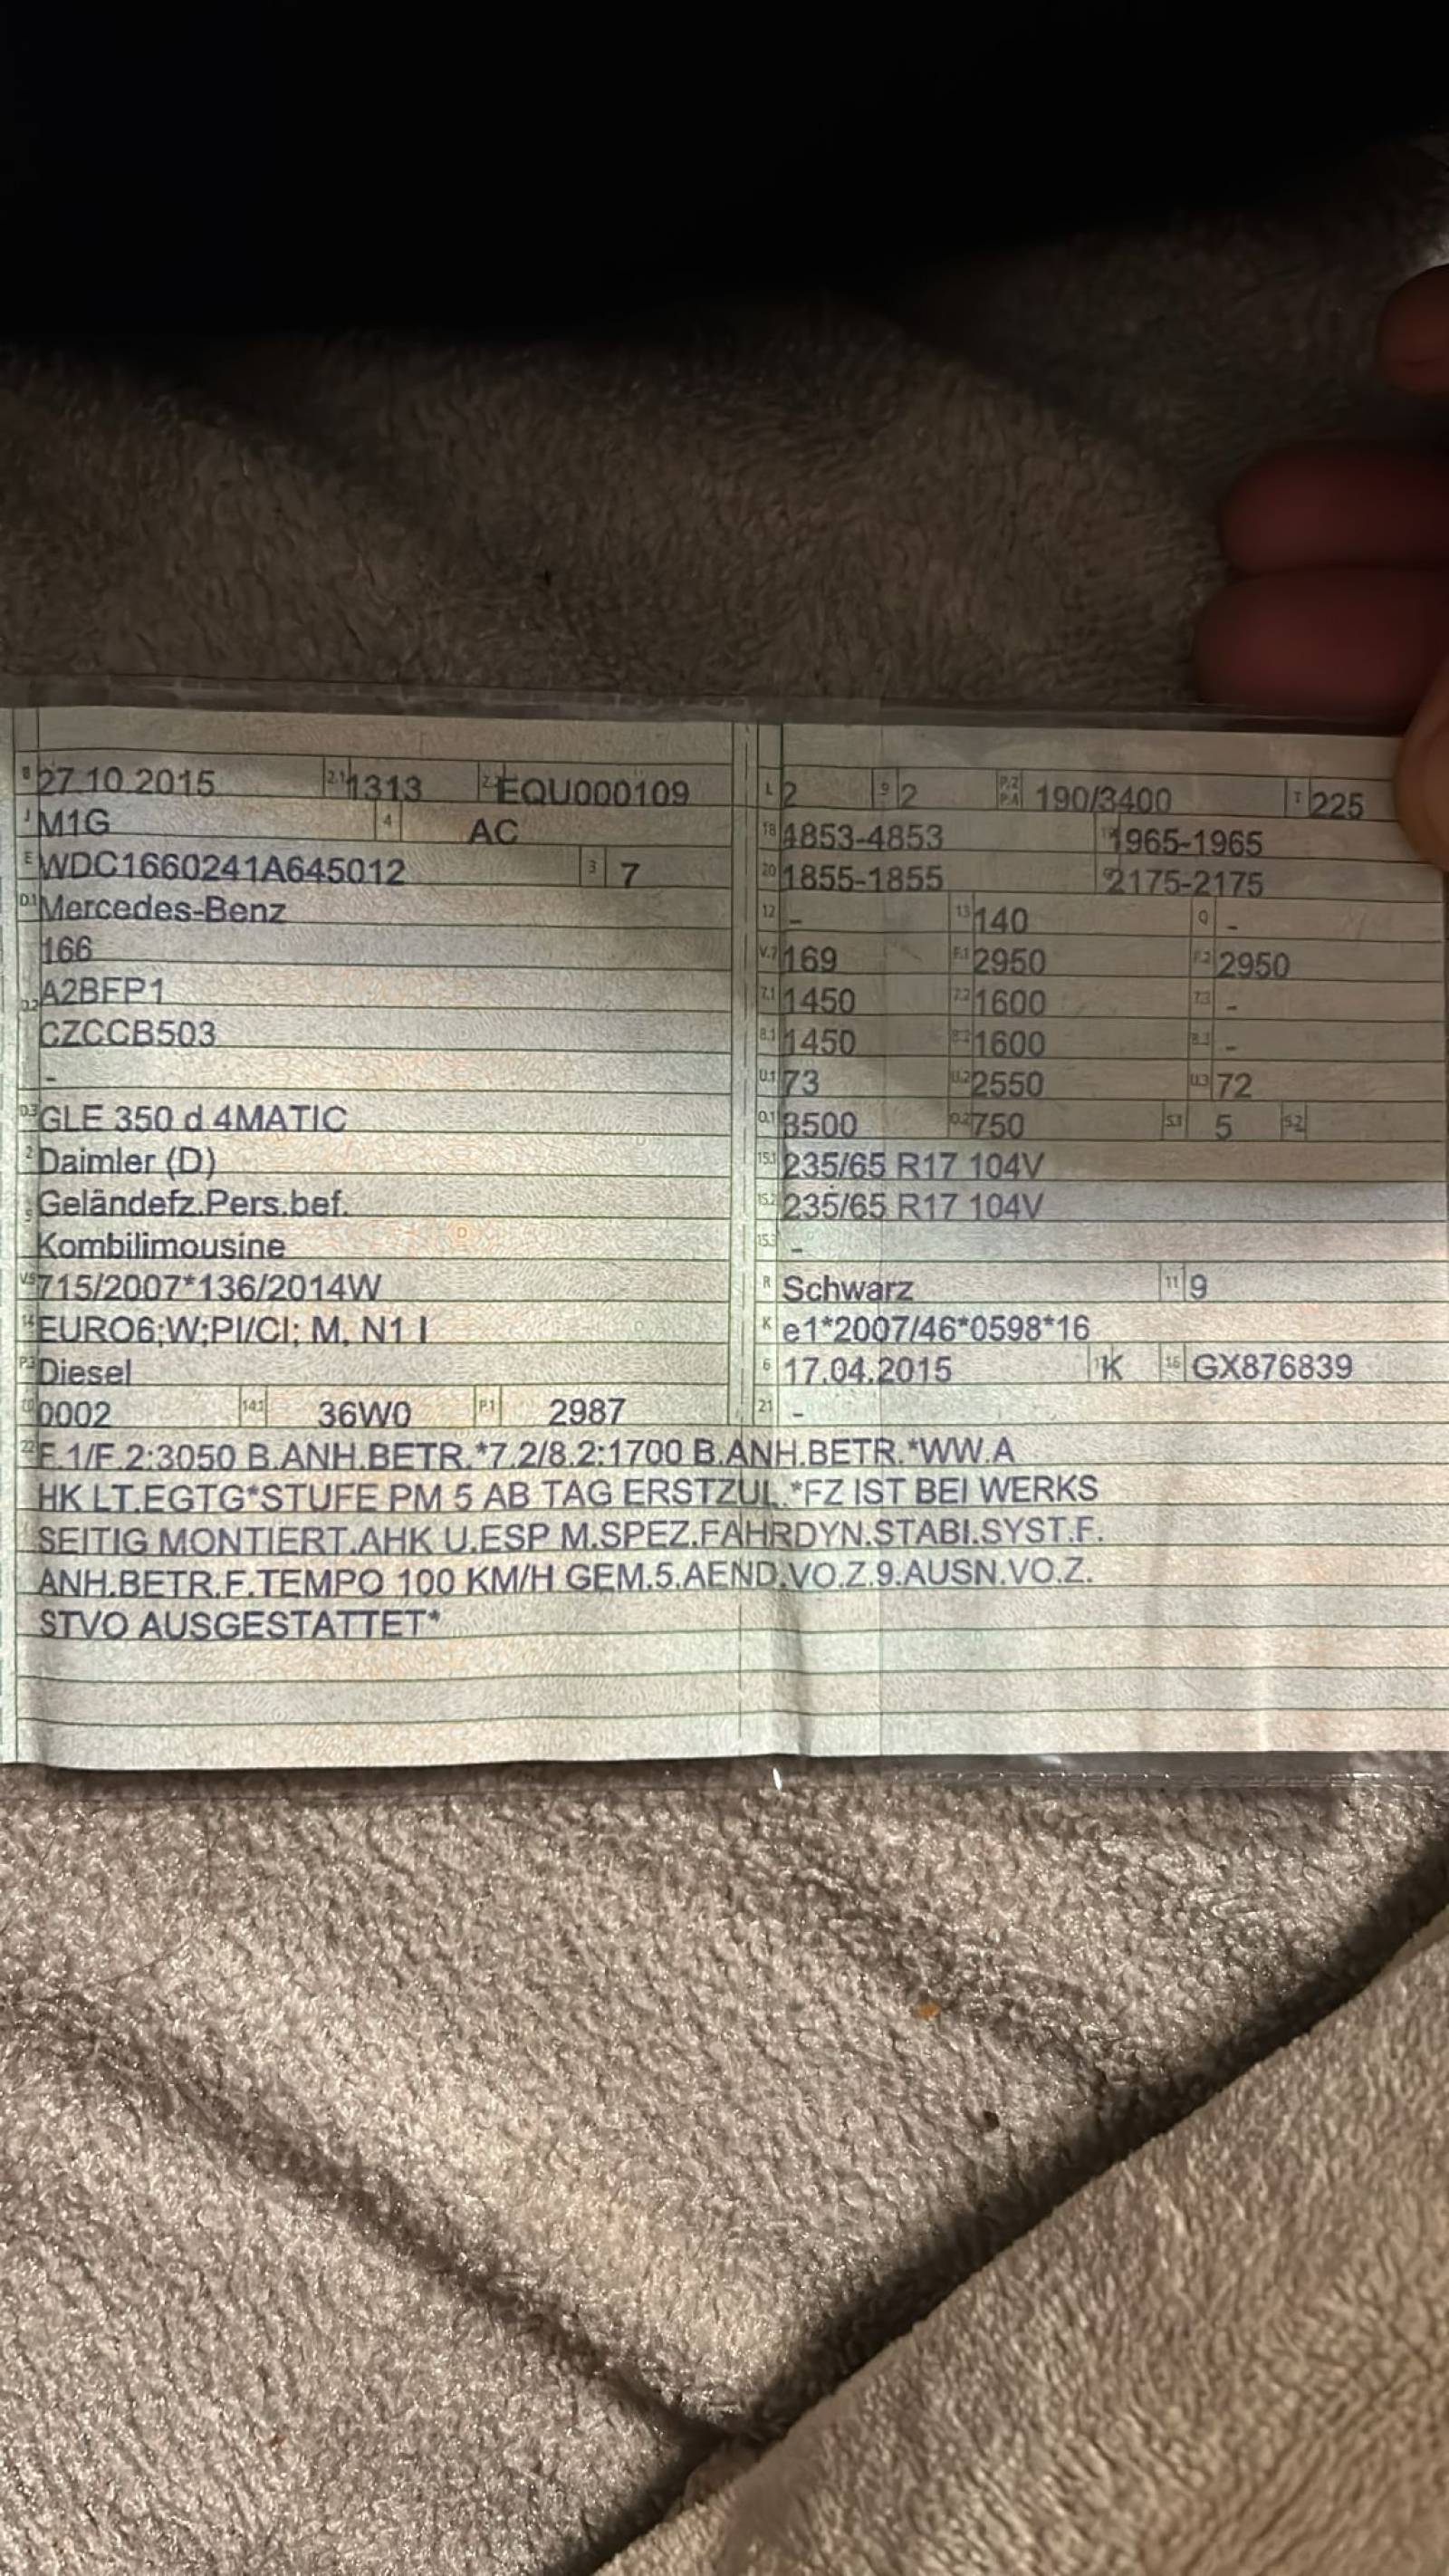 B 27.10.2015 2.1 1313 2.2 EQU000109
J M1G 4 AC
E WDC1660241A645012 3 7
D.1 Mercedes-Benz
166
D.2 A2BFP1
CZCCB503
-
D.3 GLE 350 d 4MATIC
2 Daimler (D)
5 Geländefz.Pers.bef.
Kombilimousine
V.9 715/2007*136/2014W
14 EURO6;W;PI/CI; M, N1 I
P.3 Diesel
10 0002 14.1 36W0 P.1 2987
L 2 9 2 P.2 P.4 190/3400 T 225
18 4853-4853 19 1965-1965
20 1855-1855 G 2175-2175
12 - 13 140 Q -
V.7 169 F.1 2950 F.2 2950
7.1 1450 7.2 1600 7.3 -
8.1 1450 8.2 1600 8.3 -
U.1 73 U.2 2550 U.3 72
O.1 3500 O.2 750 S.1 5 S.2
15.1 235/65 R17 104V
15.2 235/65 R17 104V
15.3 -
R Schwarz 11 9
K e1*2007/46*0598*16
6 17.04.2015 17 K 16 GX876839
21 -
22 F.1/F.2:3050 B.ANH.BETR.*7.2/8.2:1700 B.ANH.BETR.*WW.A
HK LT.EGTG*STUFE PM 5 AB TAG ERSTZUL.*FZ IST BEI WERKS
SEITIG MONTIERT.AHK U.ESP M.SPEZ.FAHRDYN.STABI.SYST.F.
ANH.BETR.F.TEMPO 100 KM/H GEM.5.AEND.VO.Z.9.AUSN.VO.Z.
STVO AUSGESTATTET*